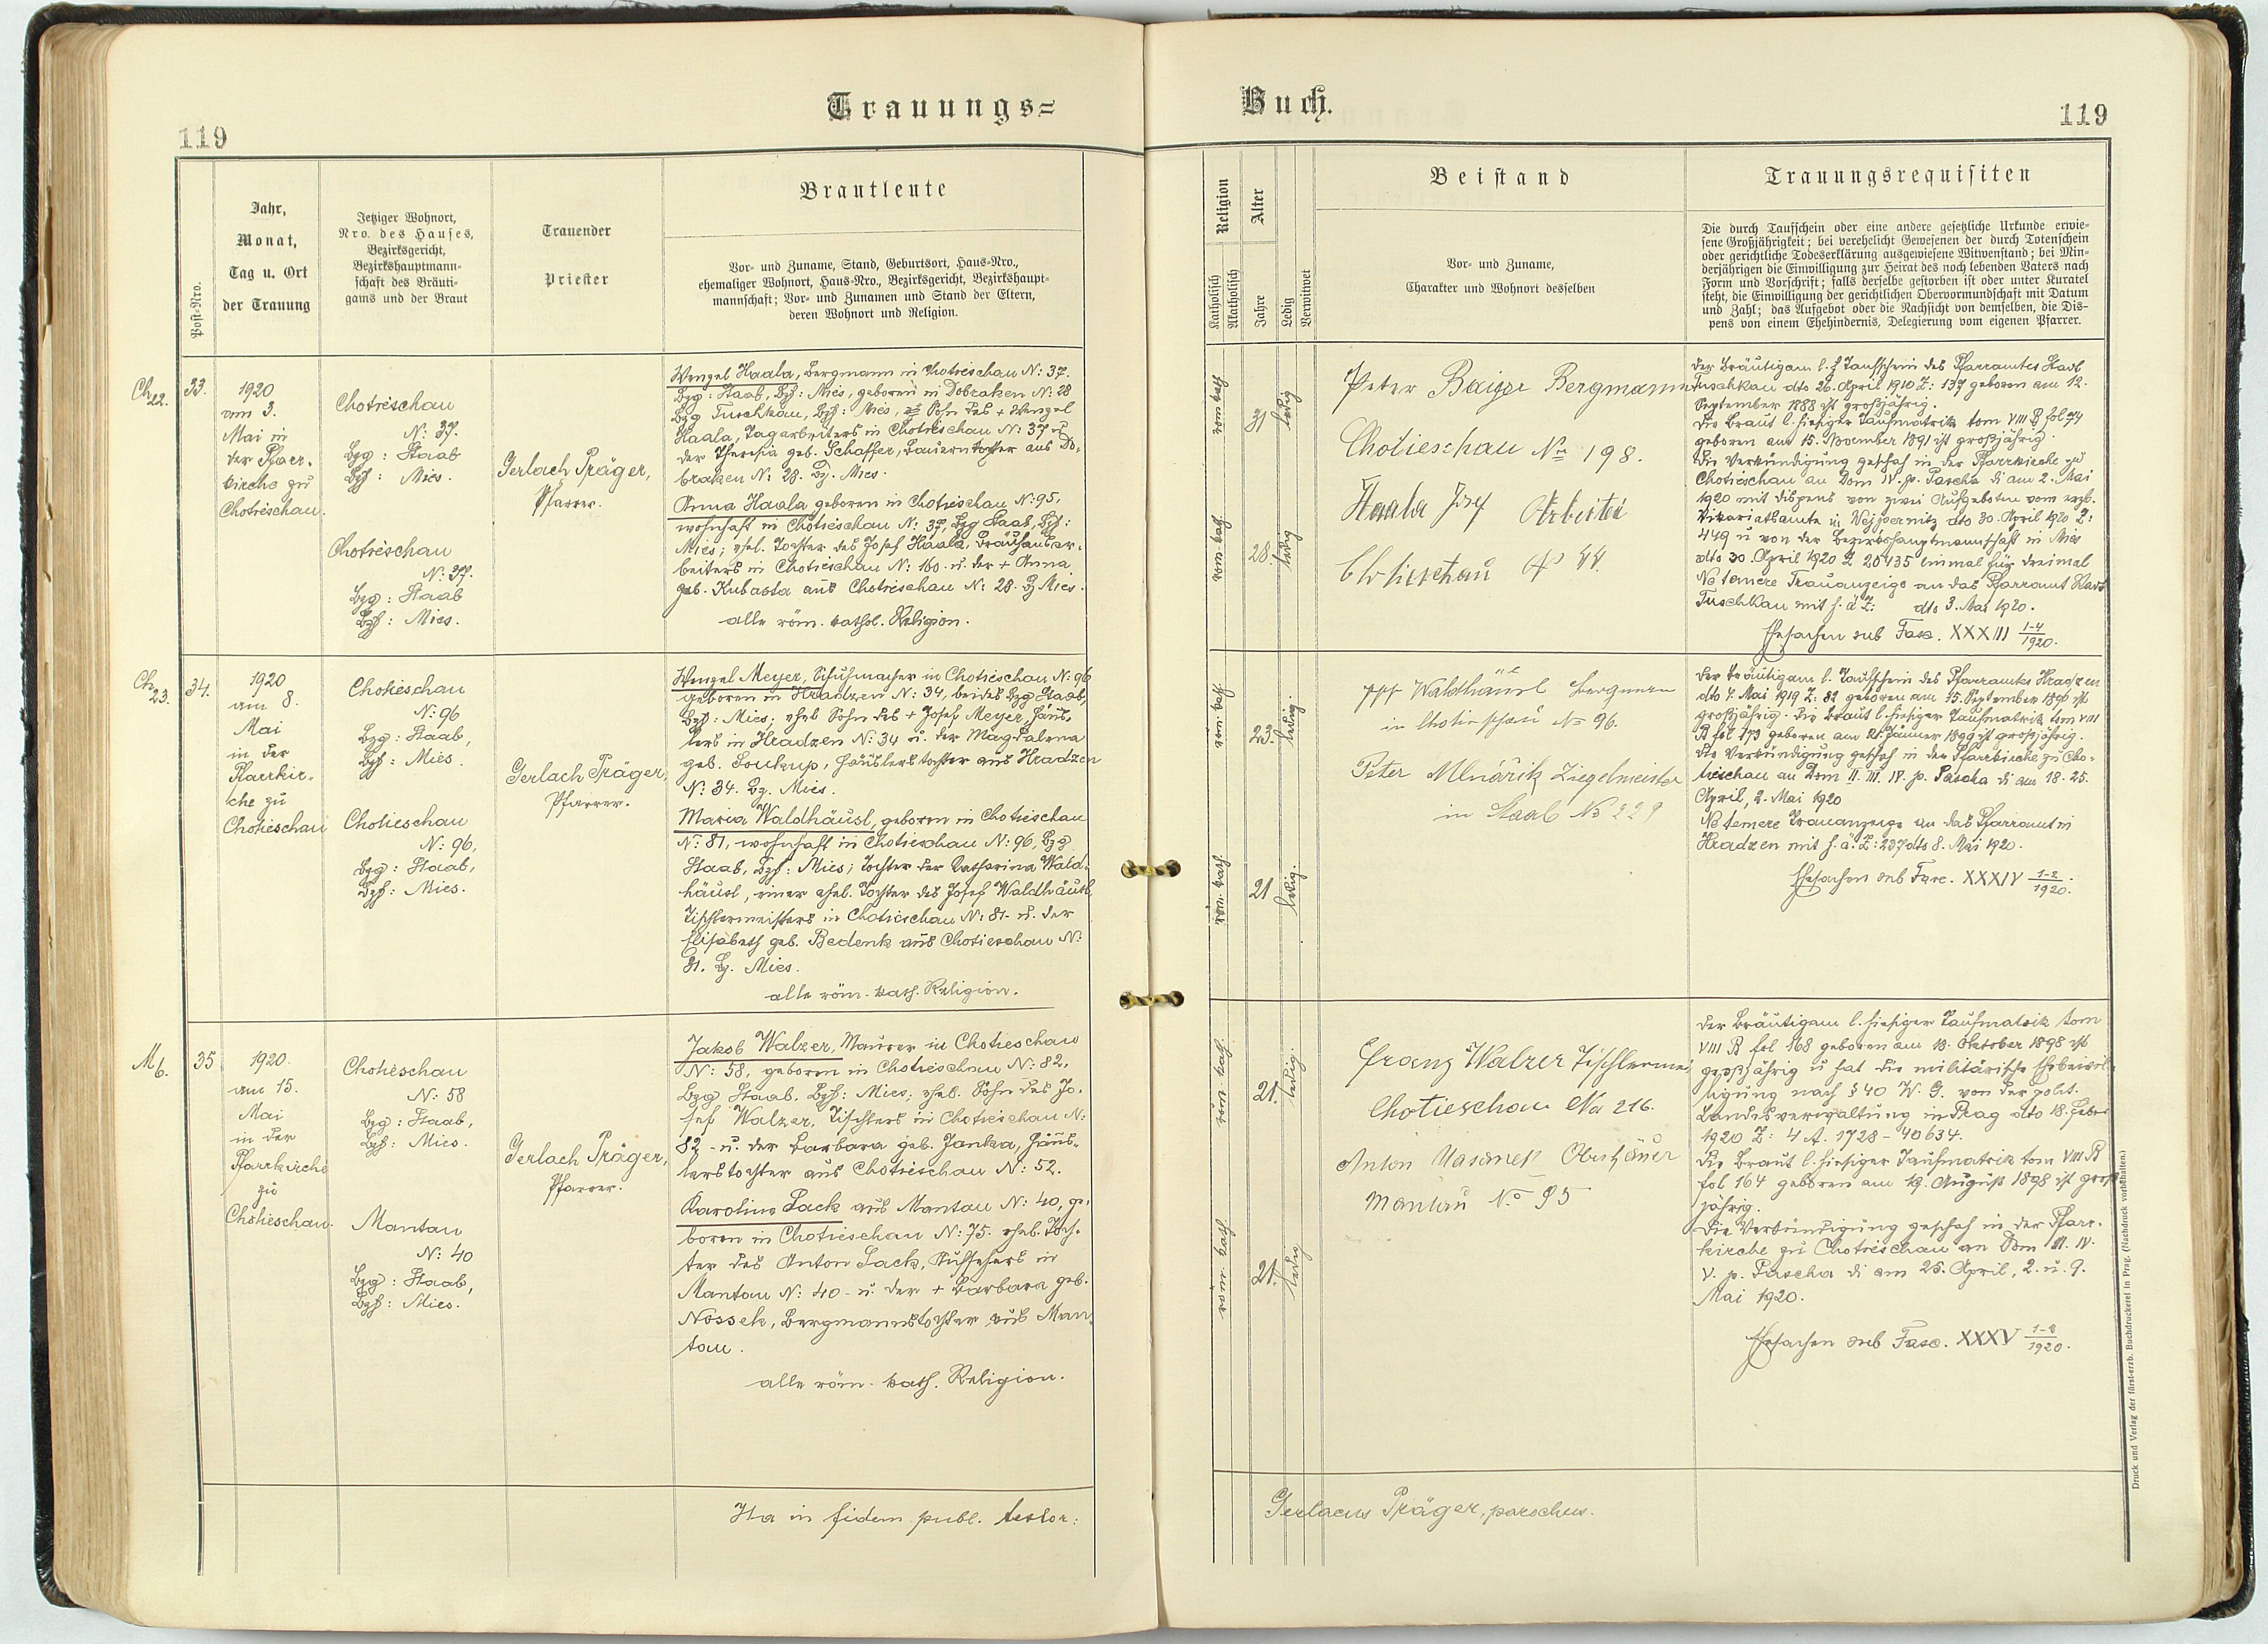 Trauungs=
Buch.
119
119
Post-Nro.
Jahr,
Monat,
Tag u. Ort
der Trauung
Jetziger Wohnort,
Nro. des Hauses,
Bezirksgericht,
Bezirkshauptmann-
schaft des Bräuti-
gams und der Braut
Trauender
Priester
Brautleute
Vor- und Zuname, Stand, Geburtsort, Haus-Nro.,
ehemaliger Wohnort, Haus-Nro., Bezirksgericht, Bezirkshaupt-
mannschaft; Vor- und Zunamen und Stand der Eltern,
deren Wohnort und Religion.
Religion
Katholisch
Akatholisch
Alter
Jahre
Ledig
Verwitwet
Beistand
Vor- und Zuname,
Charakter und Wohnort desselben
Trauungsrequisiten
Die durch Taufschein oder eine andere gesetzliche Urkunde erwie-
sene Großjährigkeit; bei verehelicht Gewesenen der durch Totenschein
oder gerichtliche Todeserklärung ausgewiesene Witwenstand; bei Min-
derjährigen die Einwilligung zur Heirat des noch lebenden Vaters nach
Form und Vorschrift; falls derselbe gestorben ist oder unter Kuratel
steht, die Einwilligung der gerichtlichen Obervormundschaft mit Datum
und Zahl; das Aufgebot oder die Nachsicht von demselben, die Dis-
pens von einem Ehehindernis, Delegierung vom eigenen Pfarrer.
Ch 22.
33.
1920
am 3.
Mai in
der Pfarr-
kirche zu
Chotieschau.
Chotieschau
N: 37.
Bzg: Staab
Bzh: Mies.
Chotieschau
N: 37.
Bzg: Staab
Bzh: Mies.
Gerlach Präger,
Pfarrer.
Wenzel Haala, Bergmann in Chotieschau N: 37.
Bzg: Staab, Bzh: Mies, geboren in Dobraken N: 28
Bzg Tuschkau, Bzh: Mies, Sohn des + Wenzel
Haala, Tagarbeiters in Chotieschau N: 37 u
der Theresia geb. Schaffer, Bauerntochter aus Do-
braken N: 28. Bz. Mies.
Anna Haala geboren in Chotieschau N: 95,
wohnhaft in Chotieschau N: 37, Bzg Staab, Bzh:
Mies; ehel. Tochter des Josef Haala, Brauhausar-
beiters in Chotieschau N: 160. u. der + Anna
geb. Kubasta aus Chotieschau N: 28. Bz Mies.
alle röm. kathol. Religion.
röm. kath.
31
ledig
röm. kath.
28.
ledig
Peter Baizer Bergmann
Chotieschau No 198.
Haala Josef Arbeiter
Chotieschau No 44.
Der Bräutigam l. Taufschein des Pfarramtes Stadt
Tuschkau dto 26. April 1910 Z: 137 geboren am 12.
September 1888 ist großjährig.
Die Braut l. hiesiger Taufmatrik tom VIII B fol 74
geboren am 15. November 1891 ist großjährig.
Die Verkündigung geschah in der Pfarrkirche zu
Chotieschau an Dom IV. p. Pascha di am 2. Mai
1920 mit Dispens von zwei Aufgeboten vom erzb.
Vikariatsamte in dto 30. April 1920 Z:
449 u von der Bezirkshauptmannschaft in Mies
dto 30. April 1920 Z 20435 einmal für dreimal
Ne temere Trauanzeige an das Pfarramt Stadt
Tuschkau mit h. ä Z: dto 3. Mai 1920.
Ehesachen sub Fasc. XXXIII 1-4/1920.
Ch 23.
34.
1920
am 8.
Mai
in der
Pfarrkir-
che zu
Chotieschau
Chotieschau
N: 96
Bzg: Staab,
Bzh: Mies.
Chotieschau
N: 96,
Bzg: Staab,
Bzh: Mies.
Gerlach Präger,
Pfarrer.
Wenzel Meyer, Schuhmacher in Chotieschau N: 96
geboren in Hradzen N: 34, beides Bzg Staab,
Bzh: Mies; ehel Sohn des + Josef Meyer, Häus-
lers in Hradzen N: 34 u. der Magdalena
geb. Soukup, Häuslerstochter aus Hradzen
N: 34. Bz. Mies.
Maria Waldhäusl, geboren in Chotieschau
N: 81, wohnhaft in Chotieschau N: 96, Bzg
Staab, Bzh: Mies; Tochter der Katharina Wald-
häusl, einer ehel. Tochter des Josef Waldhäusl,
Tischlermeisters in Chotieschau N: 81. u. der
Elisabeth geb. Bedenk aus Chotieschau N:
81. Bz. Mies.
alle röm. kath. Religion.
röm. kath.
23.
ledig.
röm. kath.
21
ledig.
Waldhäusl Bergmann
in Chotieschau No 96.
Peter Mlnářik Ziegelmeister
in Staab No 229
Der Bräutigam l. Taufschein des Pfarramtes Hradzen
dto 4. Mai 1919 Z: 82 geboren am 15. September 1896 ist
großjährig. Die Braut l. hiesiger Taufmatrik tom VIII
B fol 173 geboren am 21. Jänner 1899 ist großjährig.
Die Verkündigung geschah in der Pfarrkirche zu Cho-
tieschau an Dom II. III. IV. p. Pascha di am 18. 25.
April, 2. Mai 1920
Ne temere Trauanzeige an das Pfarramt in
Hradzen mit h. ä. Z: 237 dto 8. Mai 1920.
Ehesachen sub Fasc. XXXIV 1-2/1920.
M 6.
35
1920.
am 15.
Mai
in der
Pfarrkirche
zu
Chotieschau.
Chotieschau
N: 58
Bzg: Staab,
Bzh: Mies.
Mantau
N: 40
Bzg: Staab,
Bzh: Mies.
Gerlach Präger,
Pfarrer.
Jakob Walzer, Maurer in Chotieschau
N: 58, geboren in Chotieschau N: 82,
Bzg Staab, Bzh: Mies; ehel. Sohn des Jo-
sef Walzer, Tischlers in Chotieschau N:
82 - u. der Barbara geb. Janka, Häus-
lerstochter aus Chotieschau N: 52.
Karolina Sack aus Mantau N: 40, ge-
boren in Chotieschau N: 75. ehel. Toch-
ter des Anton Sack, Aufsehers in
Mantau N: 40 - u. der + Barbara geb.
Nossek, Bergmannstochter aus Man-
tau.
alle röm. kath. Religion.
röm. kath.
21.
ledig.
röm. kath
21.
ledig
Franz Walzer Tischlermei
Chotieschau No 216.
Anton Oberhäuer
Mantau No 95
Der Bräutigam l. hiesiger Taufmatrik tom
VIII B fol 168 geboren am 18. Oktober 1898 ist
großjährig u hat die militärische Ehebewil-
ligung nach § 40 W. G. von der polit.
Landesverwaltung in Prag dto 18. Feber
1920 Z: 4 A. 1728 - 40634.
Die Braut l. hiesiger Taufmatrik tom VIII B
fol 164 geboren am 19. August 1898 ist groß
jährig.
Die Verkündigung geschah in der Pfarr-
kirche zu Chotieschau an Dom III. IV.
V. p. Pascha di am 25. April, 2. u. 9.
Mai 1920.
Ehesachen sub Fasc. XXXV 1-8/1920.
Ita in fidem publ. testor:
Gerlacus Präger, parochus.
Druck und Verlag der fürst-erzb. Buchdruckerei in Prag. (Nachdruck vorbehalten.)